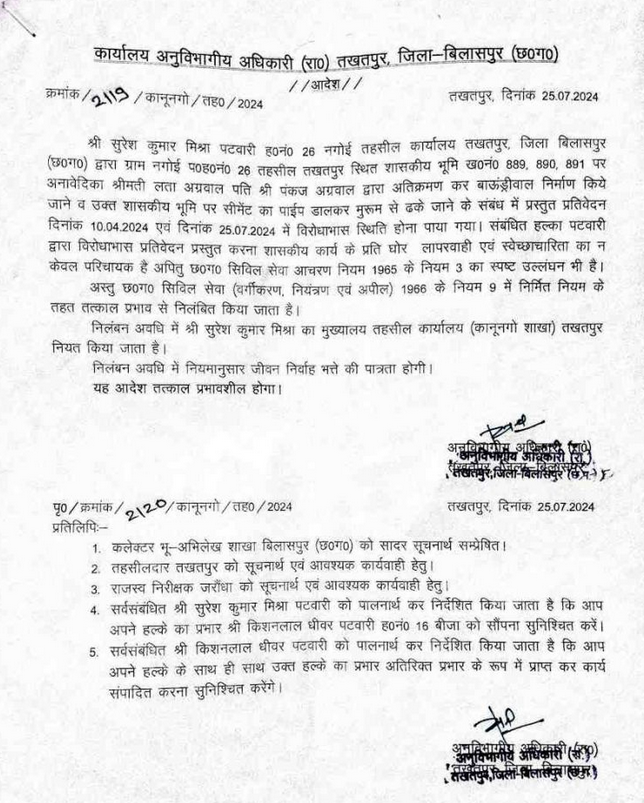 कार्यालय अनुविभागीय अधिकारी (रा0) तखतपुर, जिला–बिलासपुर (छ0ग0)
//आदेश//
क्रमांक/2119/कानूनगो/तह0/2024 तखतपुर, दिनांक 25.07.2024
श्री सुरेश कुमार मिश्रा पटवारी ह0नं0 26 नगोई तहसील कार्यालय तखतपुर, जिला बिलासपुर
(छ0ग0) द्वारा ग्राम नगोई प0ह0नं0 26 तहसील तखतपुर स्थित शासकीय भूमि ख0नं0 889, 890, 891 पर
अनावेदिका श्रीमती लता अग्रवाल पति श्री पंकज अग्रवाल द्वारा अतिक्रमण कर बाऊंड्रीवाल निर्माण किये
जाने व उक्त शासकीय भूमि पर सीमेंट का पाईप डालकर मुरूम से ढके जाने के संबंध में प्रस्तुत प्रतिवेदन
दिनांक 10.04.2024 एवं दिनांक 25.07.2024 में विरोधाभास स्थिति होना पाया गया। संबंधित हल्का पटवारी
द्वारा विरोधाभास प्रतिवेदन प्रस्तुत करना शासकीय कार्य के प्रति घोर लापरवाही एवं स्वेच्छाचारिता का न
केवल परिचायक है अपितु छ0ग0 सिविल सेवा आचरण नियम 1965 के नियम 3 का स्पष्ट उल्लंघन भी है।
अस्तु छ0ग0 सिविल सेवा (वर्गीकरण, नियंत्रण एवं अपील) 1966 के नियम 9 में निर्मित नियम के
तहत तत्काल प्रभाव से निलंबित किया जाता है।
निलंबन अवधि में श्री सुरेश कुमार मिश्रा का मुख्यालय तहसील कार्यालय (कानूनगो शाखा) तखतपुर
नियत किया जाता है।
निलंबन अवधि में नियमानुसार जीवन निर्वाह भत्ते की पात्रता होगी।
यह आदेश तत्काल प्रभावशील होगा।
अनुविभागीय अधिकारी (रा0)
अनुविभागीय अधिकारी (रा.)
तखतपुर जिला–बिलासपुर
तखतपुर,जिला-बिलासपुर (छ.ग.)
पृ0/क्रमांक/2120/कानूनगो/तह0/2024 तखतपुर, दिनांक 25.07.2024
प्रतिलिपिः–
1. कलेक्टर भू–अभिलेख शाखा बिलासपुर (छ0ग0) को सादर सूचनार्थ सम्प्रेषित।
2. तहसीलदार तखतपुर को सूचनार्थ एवं आवश्यक कार्यवाही हेतु।
3. राजस्व निरीक्षक जरौंधा को सूचनार्थ एवं आवश्यक कार्यवाही हेतु।
4. सर्वसंबंधित श्री सुरेश कुमार मिश्रा पटवारी को पालनार्थ कर निर्देशित किया जाता है कि आप
अपने हल्के का प्रभार श्री किशनलाल धीवर पटवारी ह0नं0 16 बीजा को सौंपना सुनिश्चित करें।
5. सर्वसंबंधित श्री किशनलाल धीवर पटवारी को पालनार्थ कर निर्देशित किया जाता है कि आप
अपने हल्के के साथ ही साथ उक्त हल्के का प्रभार अतिरिक्त प्रभार के रूप में प्राप्त कर कार्य
संपादित करना सुनिश्चित करेंगे।
अनुविभागीय अधिकारी (रा0)
अनुविभागीय अधिकारी (रा.)
तखतपुर जिला बिलासपुर
तखतपुर,जिला-बिलासपुर (छ.ग.)